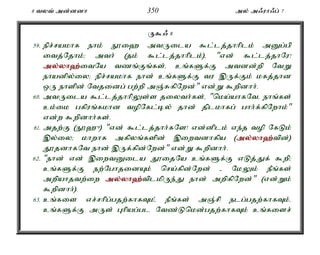 8 வலவ் அன்னனா 350 அல் அஃராஃப் 7
ருகூஃ 8
59. நிச்சயமாக நாம் நூஹை அவருடைய கூட்டத்தாரிடம் அனுப்பி
வைத்தோம்; அவர் (தம் கூட்டத்தாரிடம்), "என் கூட்டத்தாரே!
அல்லாஹ்வையே வணங்குங்கள், உங்களுக்கு அவனன்றி வேறு
நாயனில்லை; நிச்சயமாக நான் உங்களுக்கு வர இருக்கும் மகத்தான
ஒரு நாளின் வேதனைப் பற்றி அஞ்சுகிறேன்" என்று கூறினார்.
60. அவருடைய கூட்டத்தாரிலுள்ள தலைவர்கள், "மெய்யாகவே நாங்கள்
உம்மை பகிரங்கமான வழிகேட்டில் தான் திடமாகப் பார்க்கிறோம்"
என்று கூறினார்கள்.
61. அதற்கு (நூஹு) "என் கூட்டத்தார்களே! என்னிடம் எந்த வழி கேடும்
இல்லை; மாறாக அகிலங்களின் இறைவனாகிய (அல்லாஹ்வின்)
தூதனாகவே நான் இருக்கின்றேன்" என்று கூறினார்.
62. "நான் என் இறைவனுடைய தூதையே உங்களுக்கு எடுத்துக் கூறி;
உங்களுக்கு நற்போதனையும் செய்கின்றேன் - மேலும் நீங்கள்
அறியாதவற்றை அல்லாஹ்விடமிருந்து நான் அறிகிறேன்" (என்றும்
கூறினார்).
63. உங்களை எச்சரிப்பதற்காகவும், நீங்கள் அஞ்சி நடப்பதற்காகவும்,
உங்களுக்கு அருள் புரியப்பட வேண்டுமென்பதற்காகவும் உங்களைச்